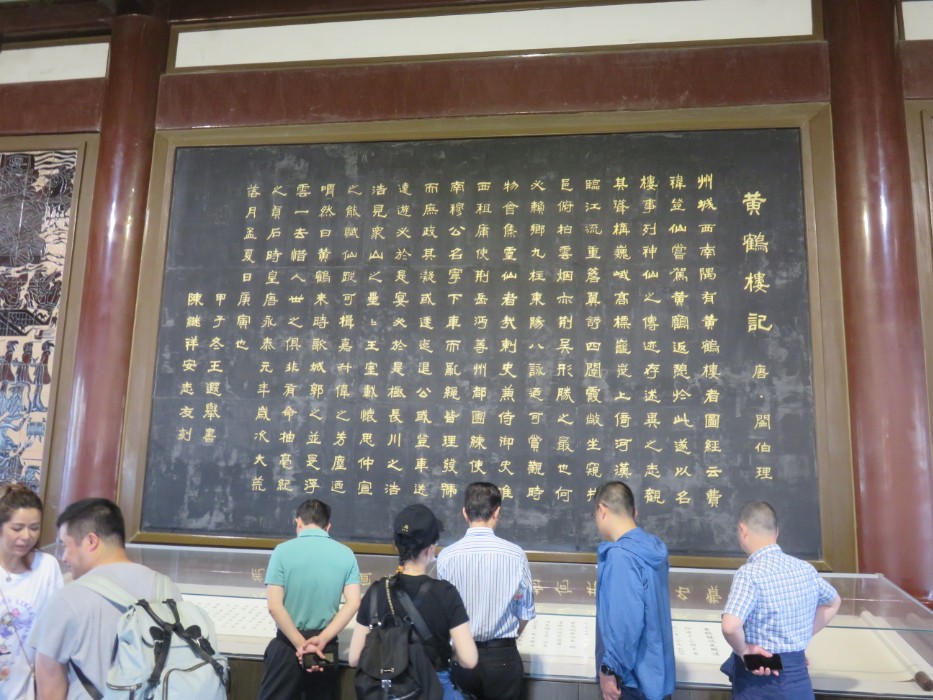 黃鶴樓記 唐·閻伯理
州城西南隅有黃鶴樓者圖經云費
禕登仙嘗駕黃鶴返憩於此遂以名
樓事列神仙之傳迹存述異之志觀
其聳構巍峨高標巃嵸上倚河漢下
臨江流重簷翼舒四闥霞敞坐窺井
邑俯拍雲烟亦荆吳形勝之最也何
必賴鄉九柱東陽八詠乃可賞觀時
物會集靈仙者哉刺史兼侍御史淮
西租庸使荆岳沔等州都團練使河
南穆公名寧下車而亂繩皆理發號
而庶政其凝或逶迤退公或登車送
遠遊必於是宴必於是極長川之浩
浩見衆山之壘〻王室載懷思仲宣
之能賦仙蹤可揖嘉叔偉之芳塵迺
喟然曰黃鶴來時歌城郭之並是浮
雲一去惜人世之俱非有命抽毫紀
之貞石時皇唐永泰元年歲次大荒
落月孟夏日庚寅也
甲子冬王遐舉書
陳繼祥安志友刻